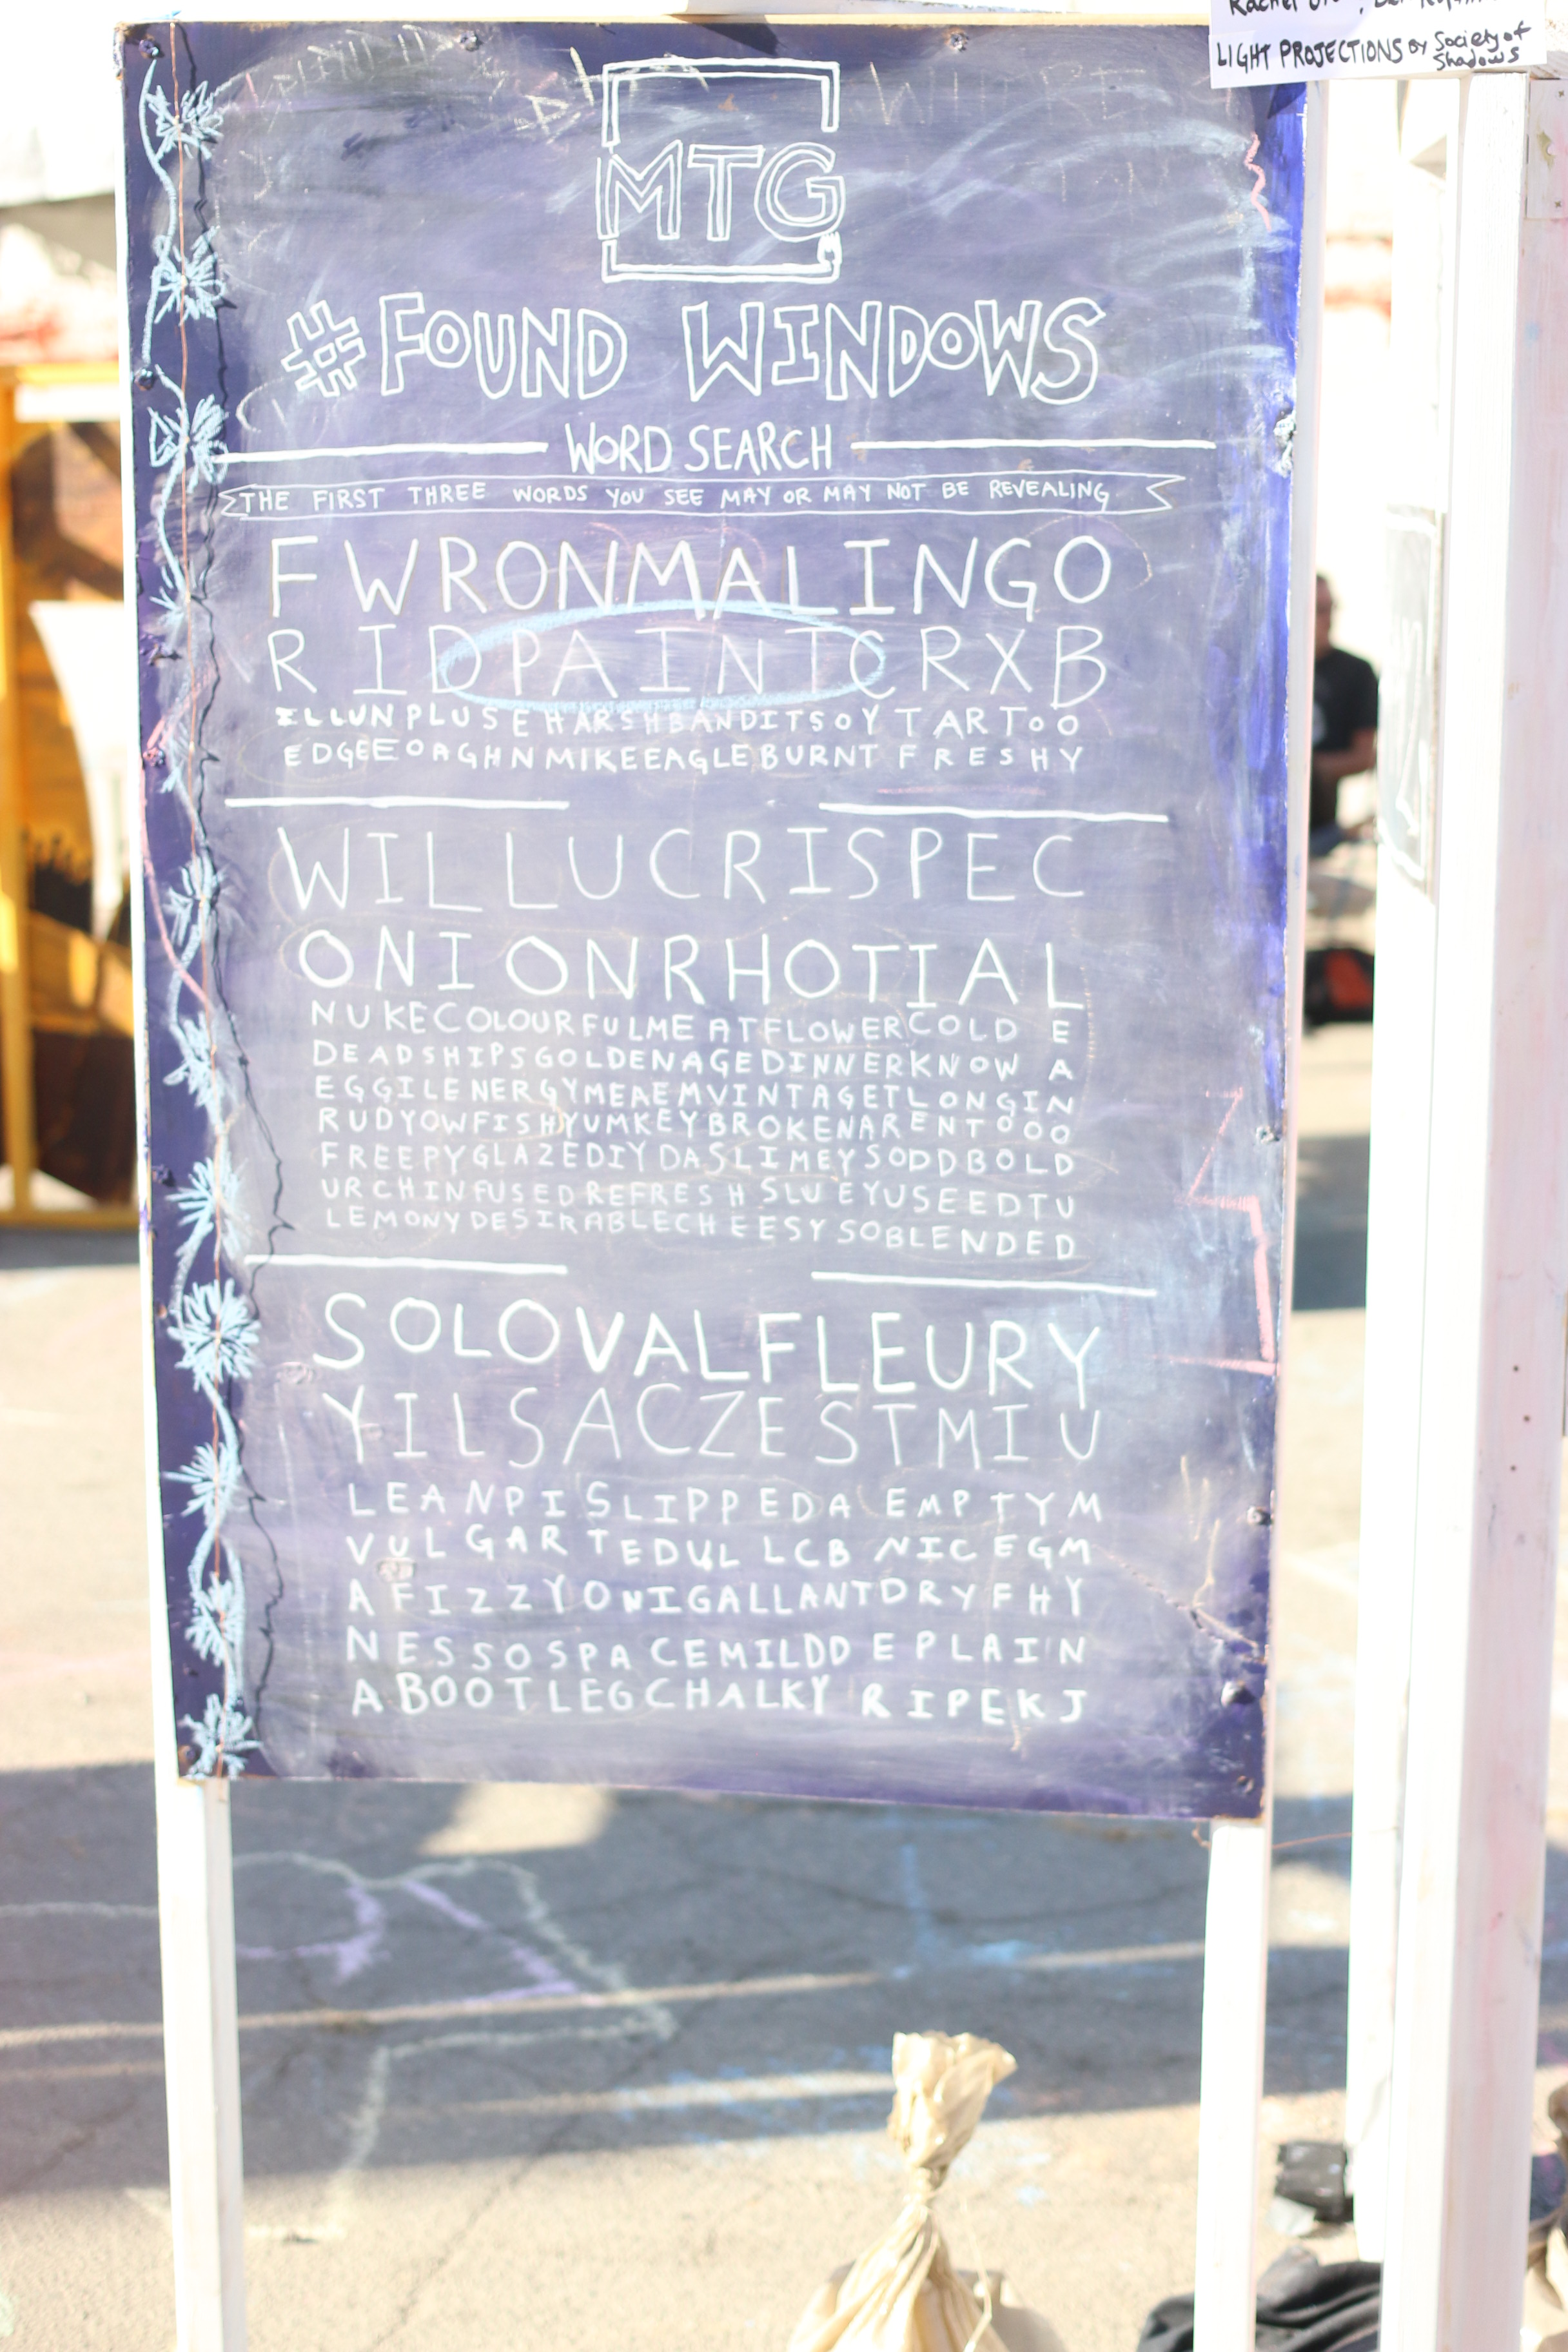 LIGHT PROJECTIONS BY Society of Shadows
MTG
#FOUND WINDOWS
WORD SEARCH
THE FIRST THREE WORDS YOU SEE MAY OR MAY NOT BE REVEALING
FWRONMALINGO
RIDPAINTCRXB
ILLUNPLUSEHARSHBANDITSOYTARTOO
EDGEEOAGHNMIKEEAGLEBURNTFRESHY
WILLUCRISPEC
ONIONRHOTIAL
NUKECOLOURFULMEATFLOWERCOLDE
DEADSHIPSGOLDENAGEDINNERKNOWA
EGGILENERGYMEAEMVINTAGETLONGIN
RUDYOWFISHYUMKEYBROKENARENTOOO
FREEPYGLAZEDIYDASLIMEYSODDBOLD
URCHINFUSEDREFRESHSLUEYUSEEDTU
LEMONYDESIRABLECHEESYSOBLENDED
SOLOVALFLEURY
YILSACZESTMIU
LEANPISLIPPEDAEMPTYM
VULGARTEDULLCBNICEGM
AFIZZYOWIGALLANTDRYFHY
NESSOSPACEMILDDEPLAIN
ABOOTLEGCHALKYRIPEKJ